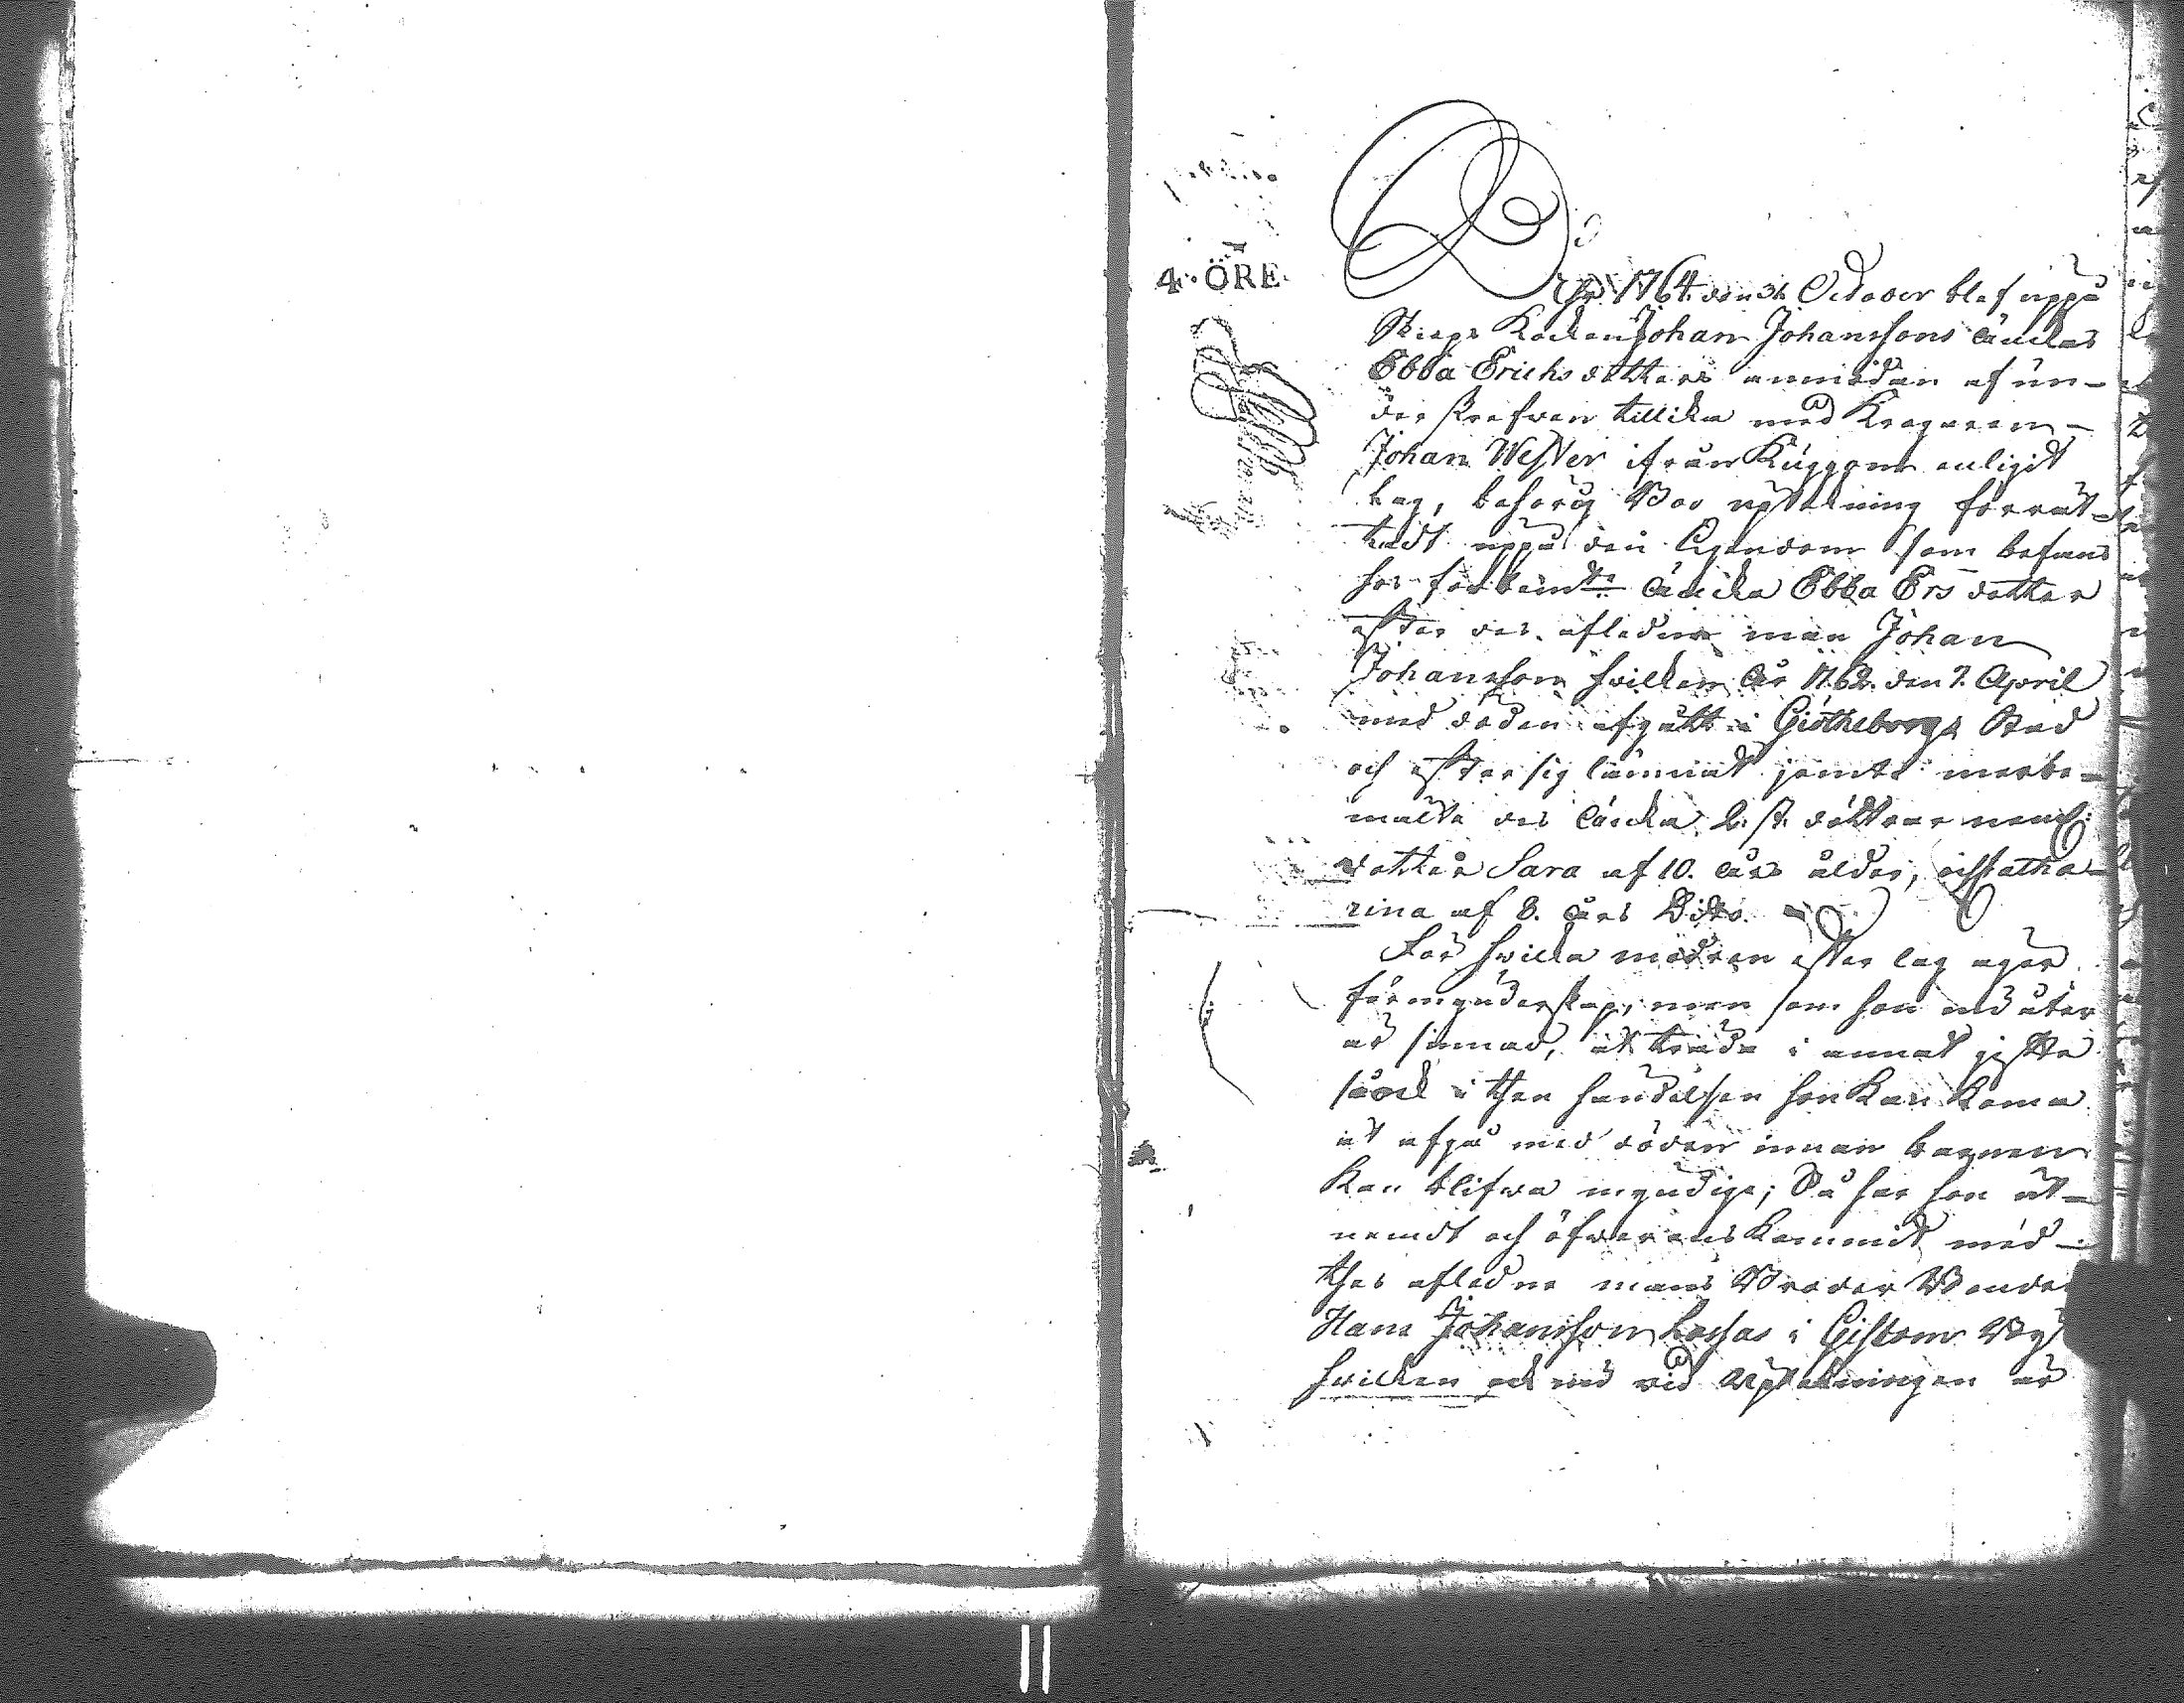 4. ÖRE
Åhr 1764. den 31. October blef uppå
Skieps Kocken Johan Johanssons änckas
Ebba Erichs dotters anmodan af un-
derskrefwen tillika med Kragaren
Johan Wester ifrån enligit
lag, behörig Boo uptekning förrät-
tadt uppå den Egendom som befans
hos förbemte änckia Ebba Ers dotter
efter des afledne man Johan
Johansson hvilken åhr 1762. den 7. April
med döden afgått i Giötheborgs Stad
och efter sig lämnat jemte merbe-
mälte des äncka 2. st. döttrar neml:
dotter Sara af 10. åhrs ålder, och Catha-
rina af 8. åhrs Dito.
För hvilka modren efter lag äger
förmynderskap; men som hon nu åter
är sinnad, at träda i annat gifte
så ock i then händelsen hon kan koma
at afgå med döden innan barnen
Kan blifwa myndige; Så har hon ut-
nemdt och öfwerens kommit med
thes afledne mans Broder Bonden
Hans Johansson Lassas i By
hvilken ock nu vid Uptekningen är